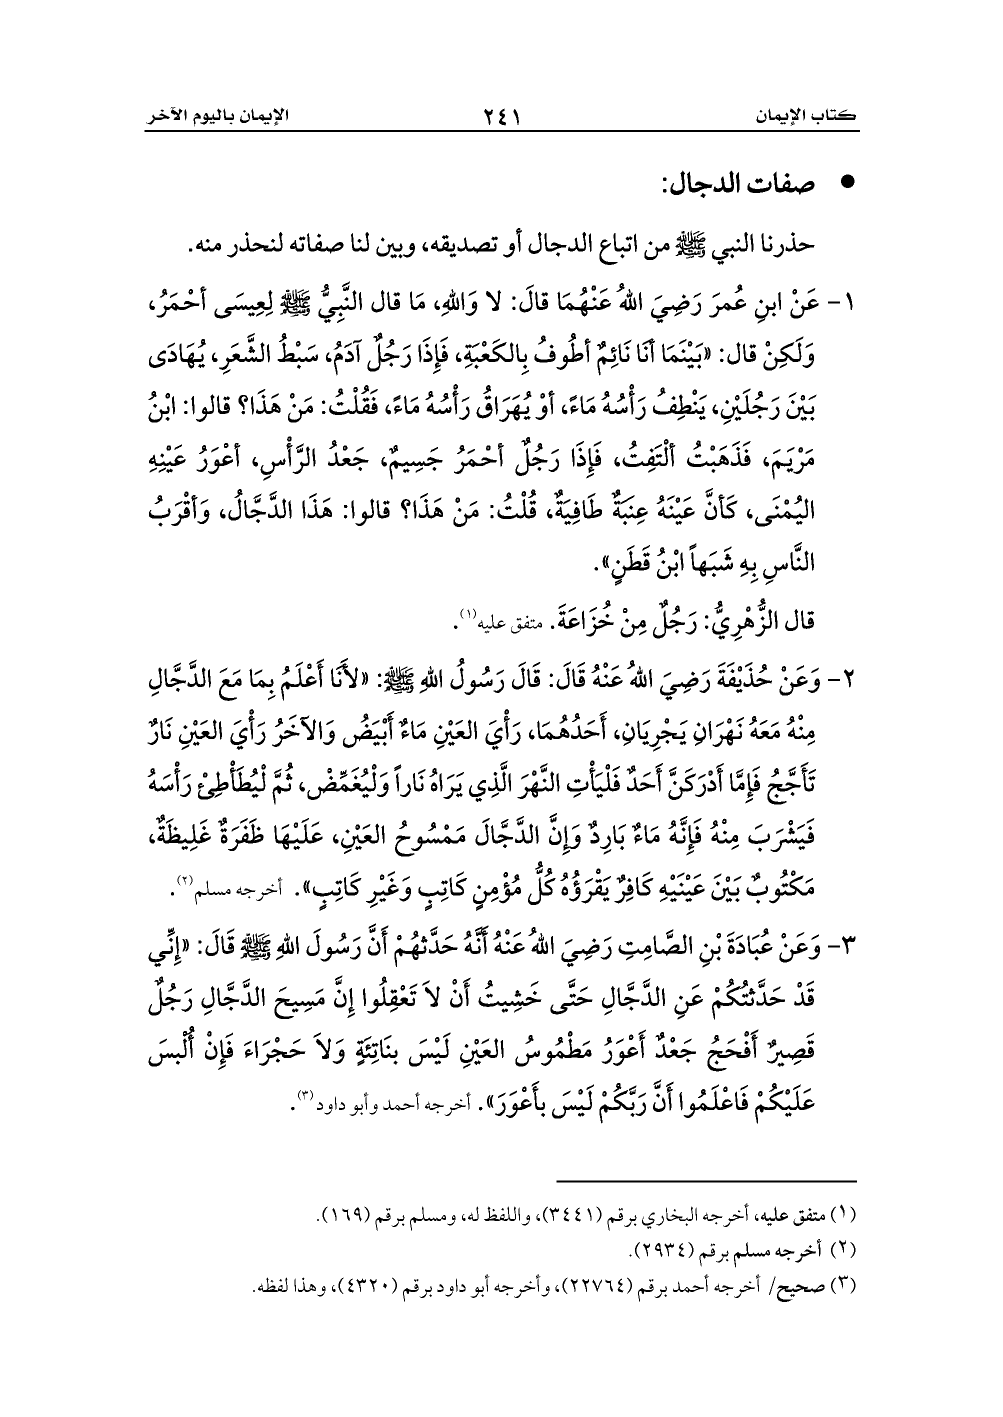 كتاب الإيمان ٢٤١ الإيمان باليوم الآخر
• صفات الدجال:
حذرنا النبي ﷺ من اتباع الدجال أو تصديقه، وبين لنا صفاته لنحذر منه.
١- عَنْ ابنِ عُمرَ رَضِيَ اللهُ عَنْهُمَا قالَ: لا وَاللهِ، مَا قال النَّبِيُّ ﷺ لِعِيسَى أحْمَرُ،
وَلَكِنْ قال: «بَيْنَمَا أنَا نَائِمٌ أطُوفُ بِالكَعْبَةِ، فَإِذَا رَجُلٌ آدَمُ، سَبْطُ الشَّعَرِ، يُهَادَى
بَيْنَ رَجُلَيْنِ، يَنْطِفُ رَأْسُهُ مَاءً، أوْ يُهَرَاقُ رَأْسُهُ مَاءً، فَقُلْتُ: مَنْ هَذَا؟ قالوا: ابْنُ
مَرْيَمَ، فَذَهَبْتُ ألْتَفِتُ، فَإِذَا رَجُلٌ أحْمَرُ جَسِيمٌ، جَعْدُ الرَّأْسِ، أعْوَرُ عَيْنِهِ
اليُمْنَى، كَأنَّ عَيْنَهُ عِنَبَةٌ طَافِيَةٌ، قُلْتُ: مَنْ هَذَا؟ قالوا: هَذَا الدَّجَّالُ، وَأقْرَبُ
النَّاسِ بِهِ شَبَهاً ابْنُ قَطَنٍ».
قال الزُّهْرِيُّ: رَجُلٌ مِنْ خُزَاعَةَ. متفق عليه(١).
٢- وَعَنْ حُذَيْفَةَ رَضِيَ اللهُ عَنْهُ قَالَ: قَالَ رَسُولُ اللهِ ﷺ: «لأَنَا أَعْلَمُ بِمَا مَعَ الدَّجَّالِ
مِنْهُ مَعَهُ نَهْرَانِ يَجْرِيَانِ، أَحَدُهُمَا، رَأْيَ العَيْنِ مَاءٌ أَبْيَضُ وَالآخَرُ رَأْيَ العَيْنِ نَارٌ
تَأَجَّجُ فَإِمَّا أَدْرَكَنَّ أَحَدٌ فَلْيَأْتِ النَّهْرَ الَّذِي يَرَاهُ نَاراً وَلْيُغَمِّضْ، ثُمَّ لْيُطَأْطِئْ رَأْسَهُ
فَيَشْرَبَ مِنْهُ فَإِنَّهُ مَاءٌ بَارِدٌ وَإِنَّ الدَّجَّالَ مَمْسُوحُ العَيْنِ، عَلَيْهَا ظَفَرَةٌ غَلِيظَةٌ،
مَكْتُوبٌ بَيْنَ عَيْنَيْهِ كَافِرٌ يَقْرَؤُهُ كُلُّ مُؤْمِنٍ كَاتِبٍ وَغَيْرِ كَاتِبٍ». أخرجه مسلم(٢).
٣- وَعَنْ عُبَادَةَ بْنِ الصَّامِتِ رَضِيَ اللهُ عَنْهُ أَنَّهُ حَدَّثهُمْ أَنَّ رَسُولَ اللهِ ﷺ قَالَ: «إِنِّي
قَدْ حَدَّثتُكُمْ عَنِ الدَّجَّالِ حَتَّى خَشِيتُ أَنْ لاَ تَعْقِلُوا إِنَّ مَسِيحَ الدَّجَّالِ رَجُلٌ
قَصِيرٌ أَفْحَجُ جَعْدٌ أَعْوَرُ مَطْمُوسُ العَيْنِ لَيْسَ بنَاتِئَةٍ وَلاَ حَجْرَاءَ فَإِنْ أُلْبسَ
عَلَيْكُمْ فَاعْلَمُوا أَنَّ رَبَّكُمْ لَيْسَ بأَعْوَرَ». أخرجه أحمد وأبو داود(٣).
(١) متفق عليه، أخرجه البخاري برقم (٣٤٤١)، واللفظ له، ومسلم برقم (١٦٩).
(٢) أخرجه مسلم برقم (٢٩٣٤).
(٣) صحيح/ أخرجه أحمد برقم (٢٢٧٦٤)، وأخرجه أبو داود برقم (٤٣٢٠)، وهذا لفظه.